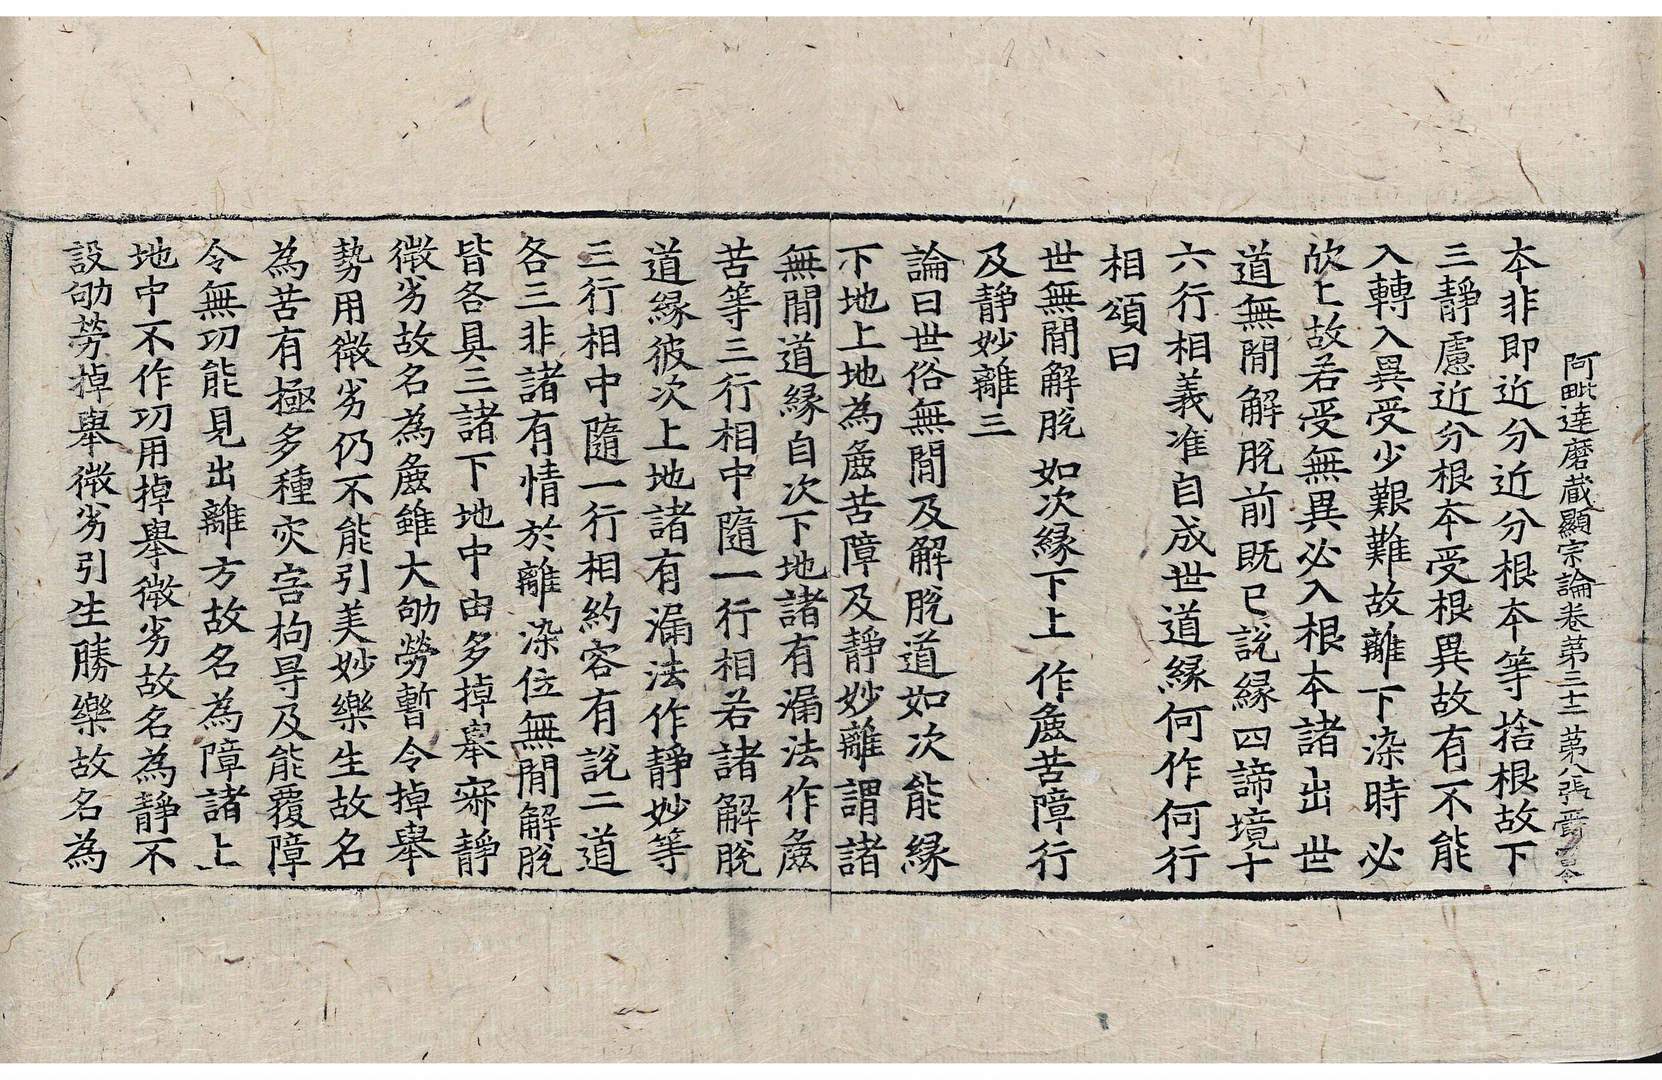 阿毗達磨蔵顯宗論卷第三十二 第八張
本非即近分近分根本等捨根故下
三靜慮近分根本受根異故有不能
入轉入異受少艱難故離下染時必
欣上故若受無異必入根本諸出世
道無間解脫前既已說緣四諦境十
六行相義准自成世道緣何作何行
相頌曰
世無間解脫 如次緣下上 作麁苦障行
及靜妙離三
論曰世俗無間及解脫道如次能緣
下地上地為麁苦障及靜妙離謂諸
無間道緣自次下地諸有漏法作麁
苦等三行相中隨一行相若諸解脫
道緣彼次上地諸有漏法作靜妙等
三行相中隨一行相約容有說二道
各三非諸有情於離染位無間解脫
皆各具三諸下地中由多掉舉寂靜
微劣故名為麁雖大劬勞暫令掉舉
勢用微劣仍不能引美妙樂生故名
為苦有極多種灾害拘㝵及能覆障
令無功能見出離方故名為障諸上
地中不作功用掉舉微劣故名為靜不
設劬勞掉舉微劣引生勝樂故名為